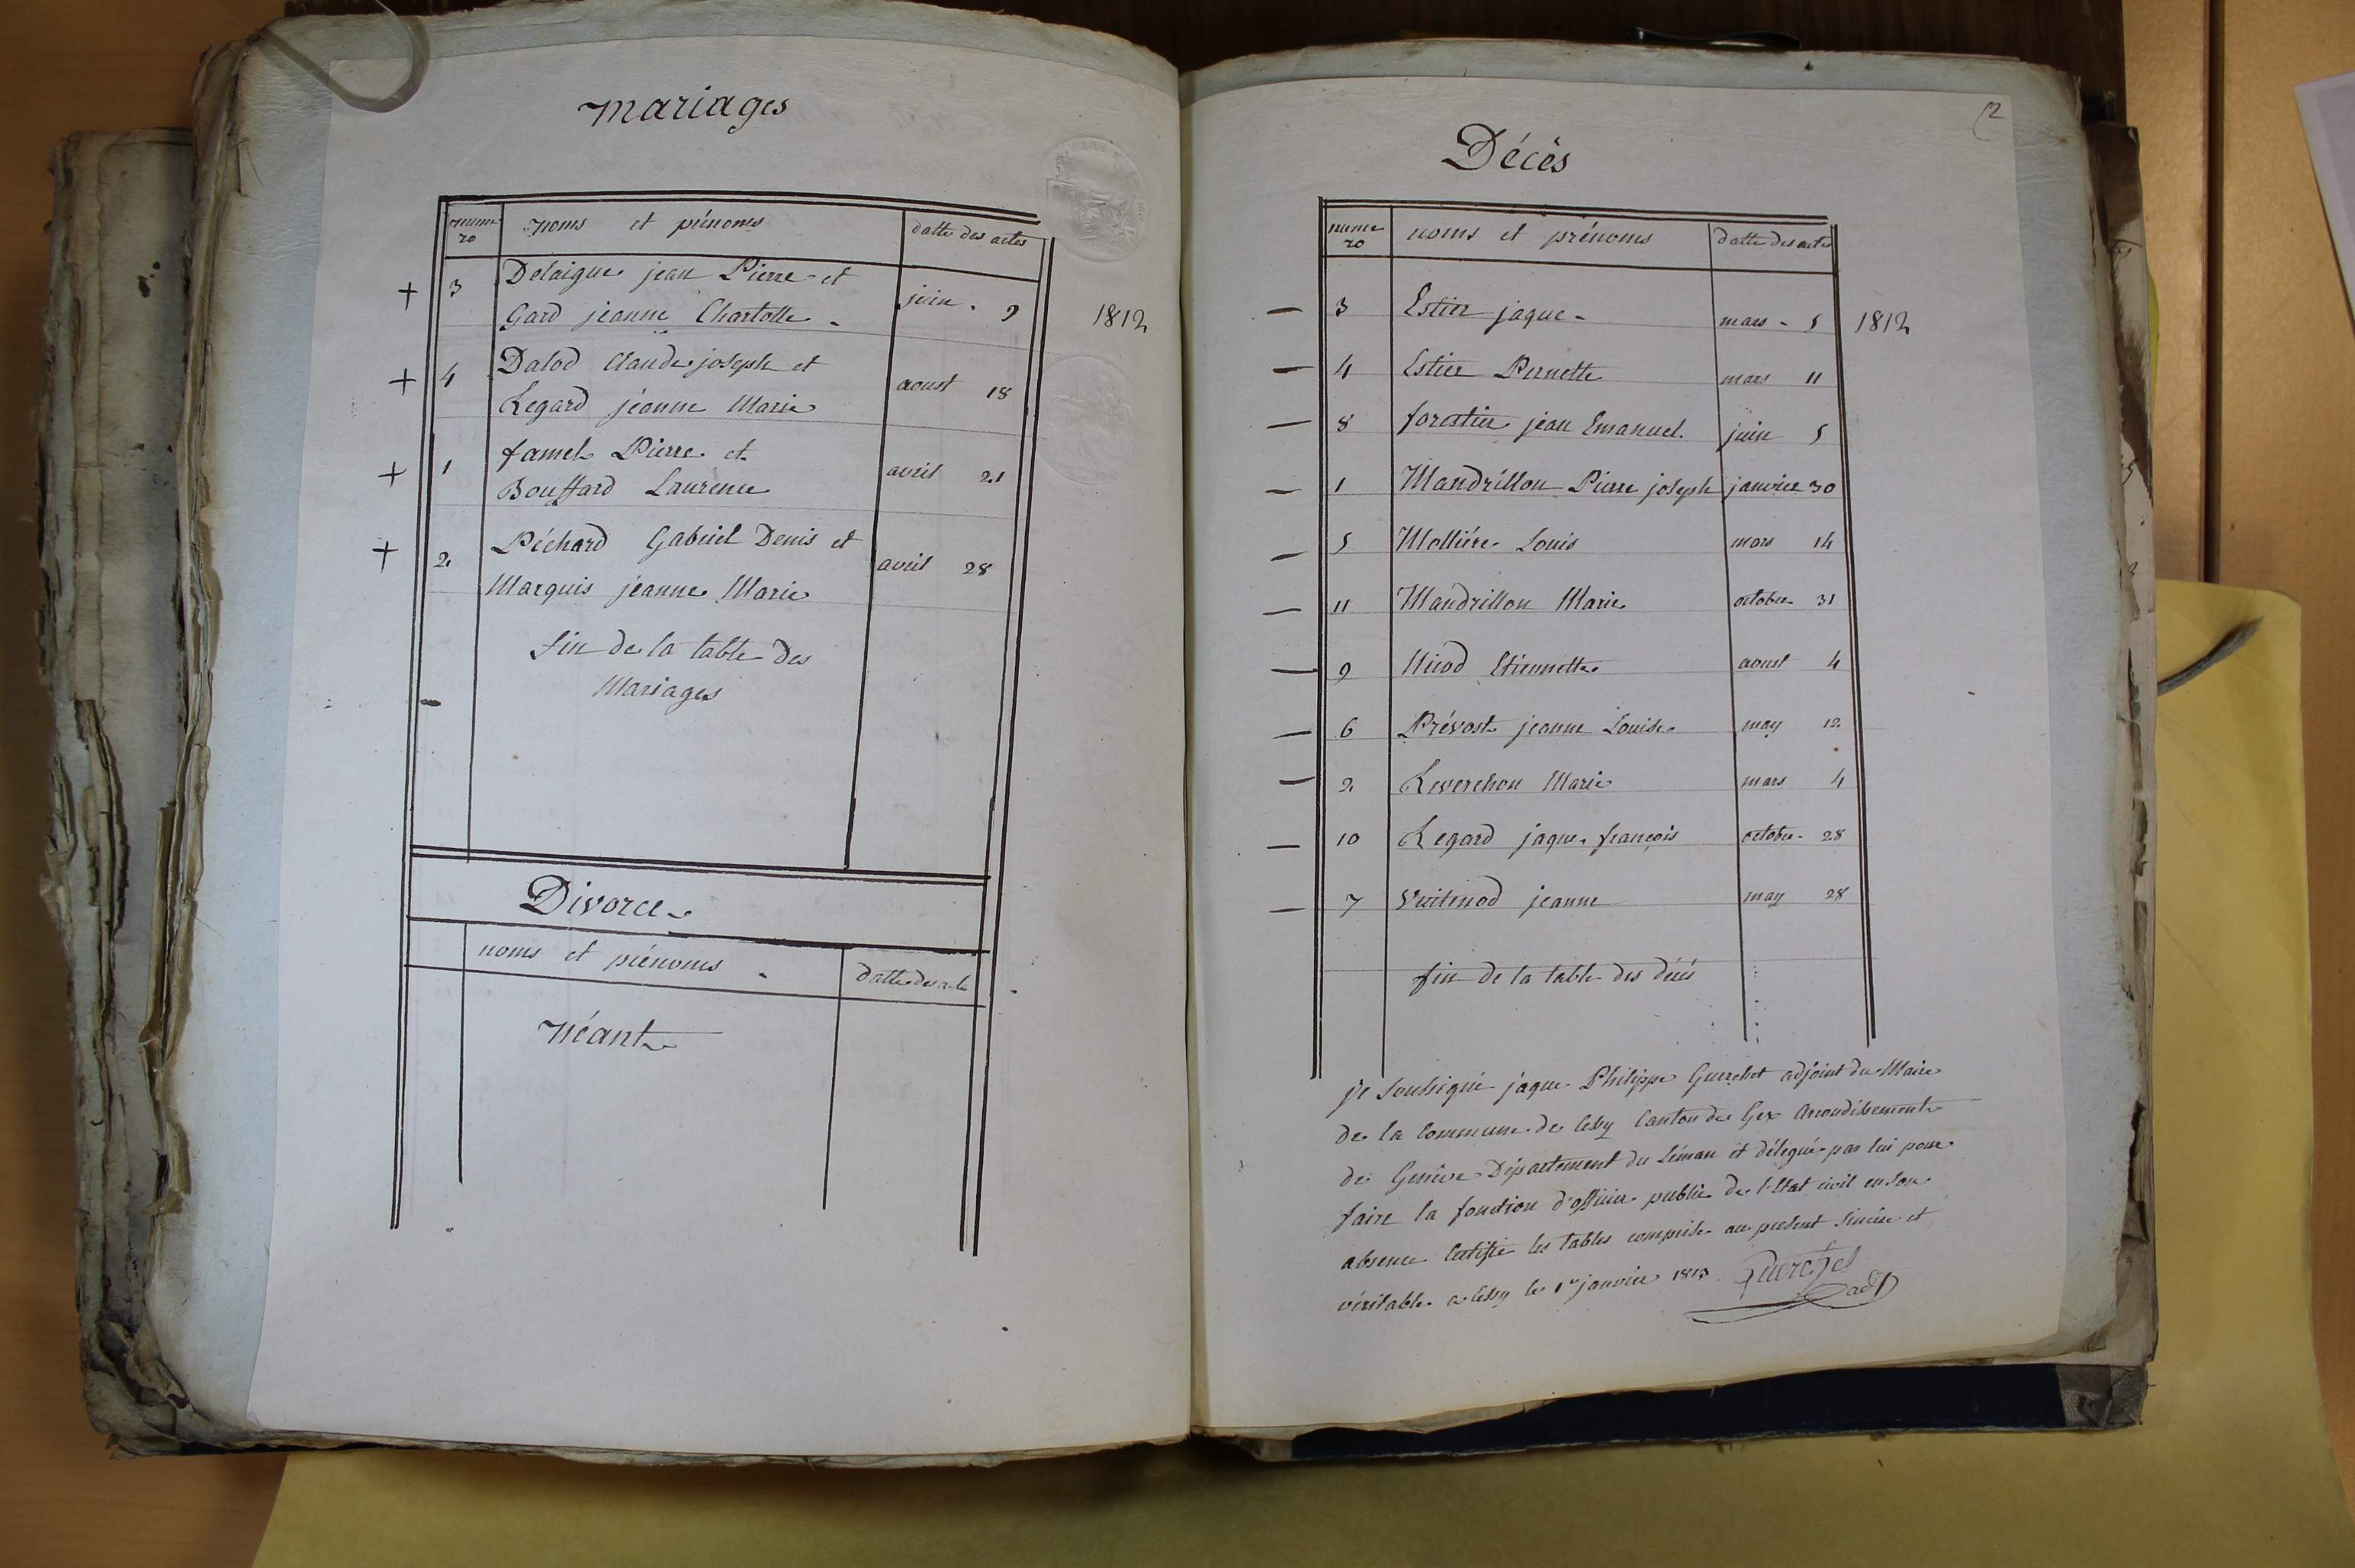 mariages
numero noms et prénoms datte des actes
3 Delaigue jean Pierre et
Gard jeanne Charlotte juin 9
1812
4 Dalod Claude joseph et
Regard jeanne Marie aoust 18
1 famel Pierre et
Bouffard Laurence avril 21
2 Péchard Gabriel Denis et
Marquis jeanne Marie avril 28
fin de la table des
Mariages
Divorce
noms et prénoms datte des acte
Néant
2
Décès
numero noms et prénoms datte des actes
3 Estier jaque mars 5 1812
4 Estier Pernette mars 11
8 forestier jean Emanuel juin 5
1 Mandrillon Pierre joseph janvier 30
5 Mollière Louis mars 14
11 Mandrillon Marie octobre 31
9 Nicod Etiennette aoust 4
6 Prévost jeanne Louise may 12
2 Reverchon Marie mars 4
10 Regard jaque françois octobre 28
7 Vuitenod jeanne may 28
fin de la table des décés
je soussigné jaque Philippe Guerchet adjoint du Maire
de la Commune de Cessy Canton de Gex Arrondissement
de Genève Département du Léman et délegué par lui pour
faire la fonction d'officier public de l'Etat civil en son
absence Certifie les tables comprise au present Sincère et
véritable a Cessy le 1er janvier 1813 Guerchet
adt